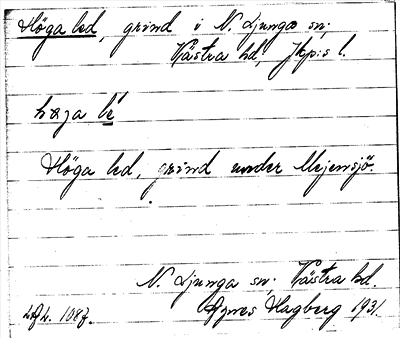 Höga led, grind i N. Ljunga sn;
Västra hd, Jkp:s l.
hөga lé
Höga led, grind under Mejensjö.
N. Ljunga sn; Västra hd.
Agnes Hagberg 1931.